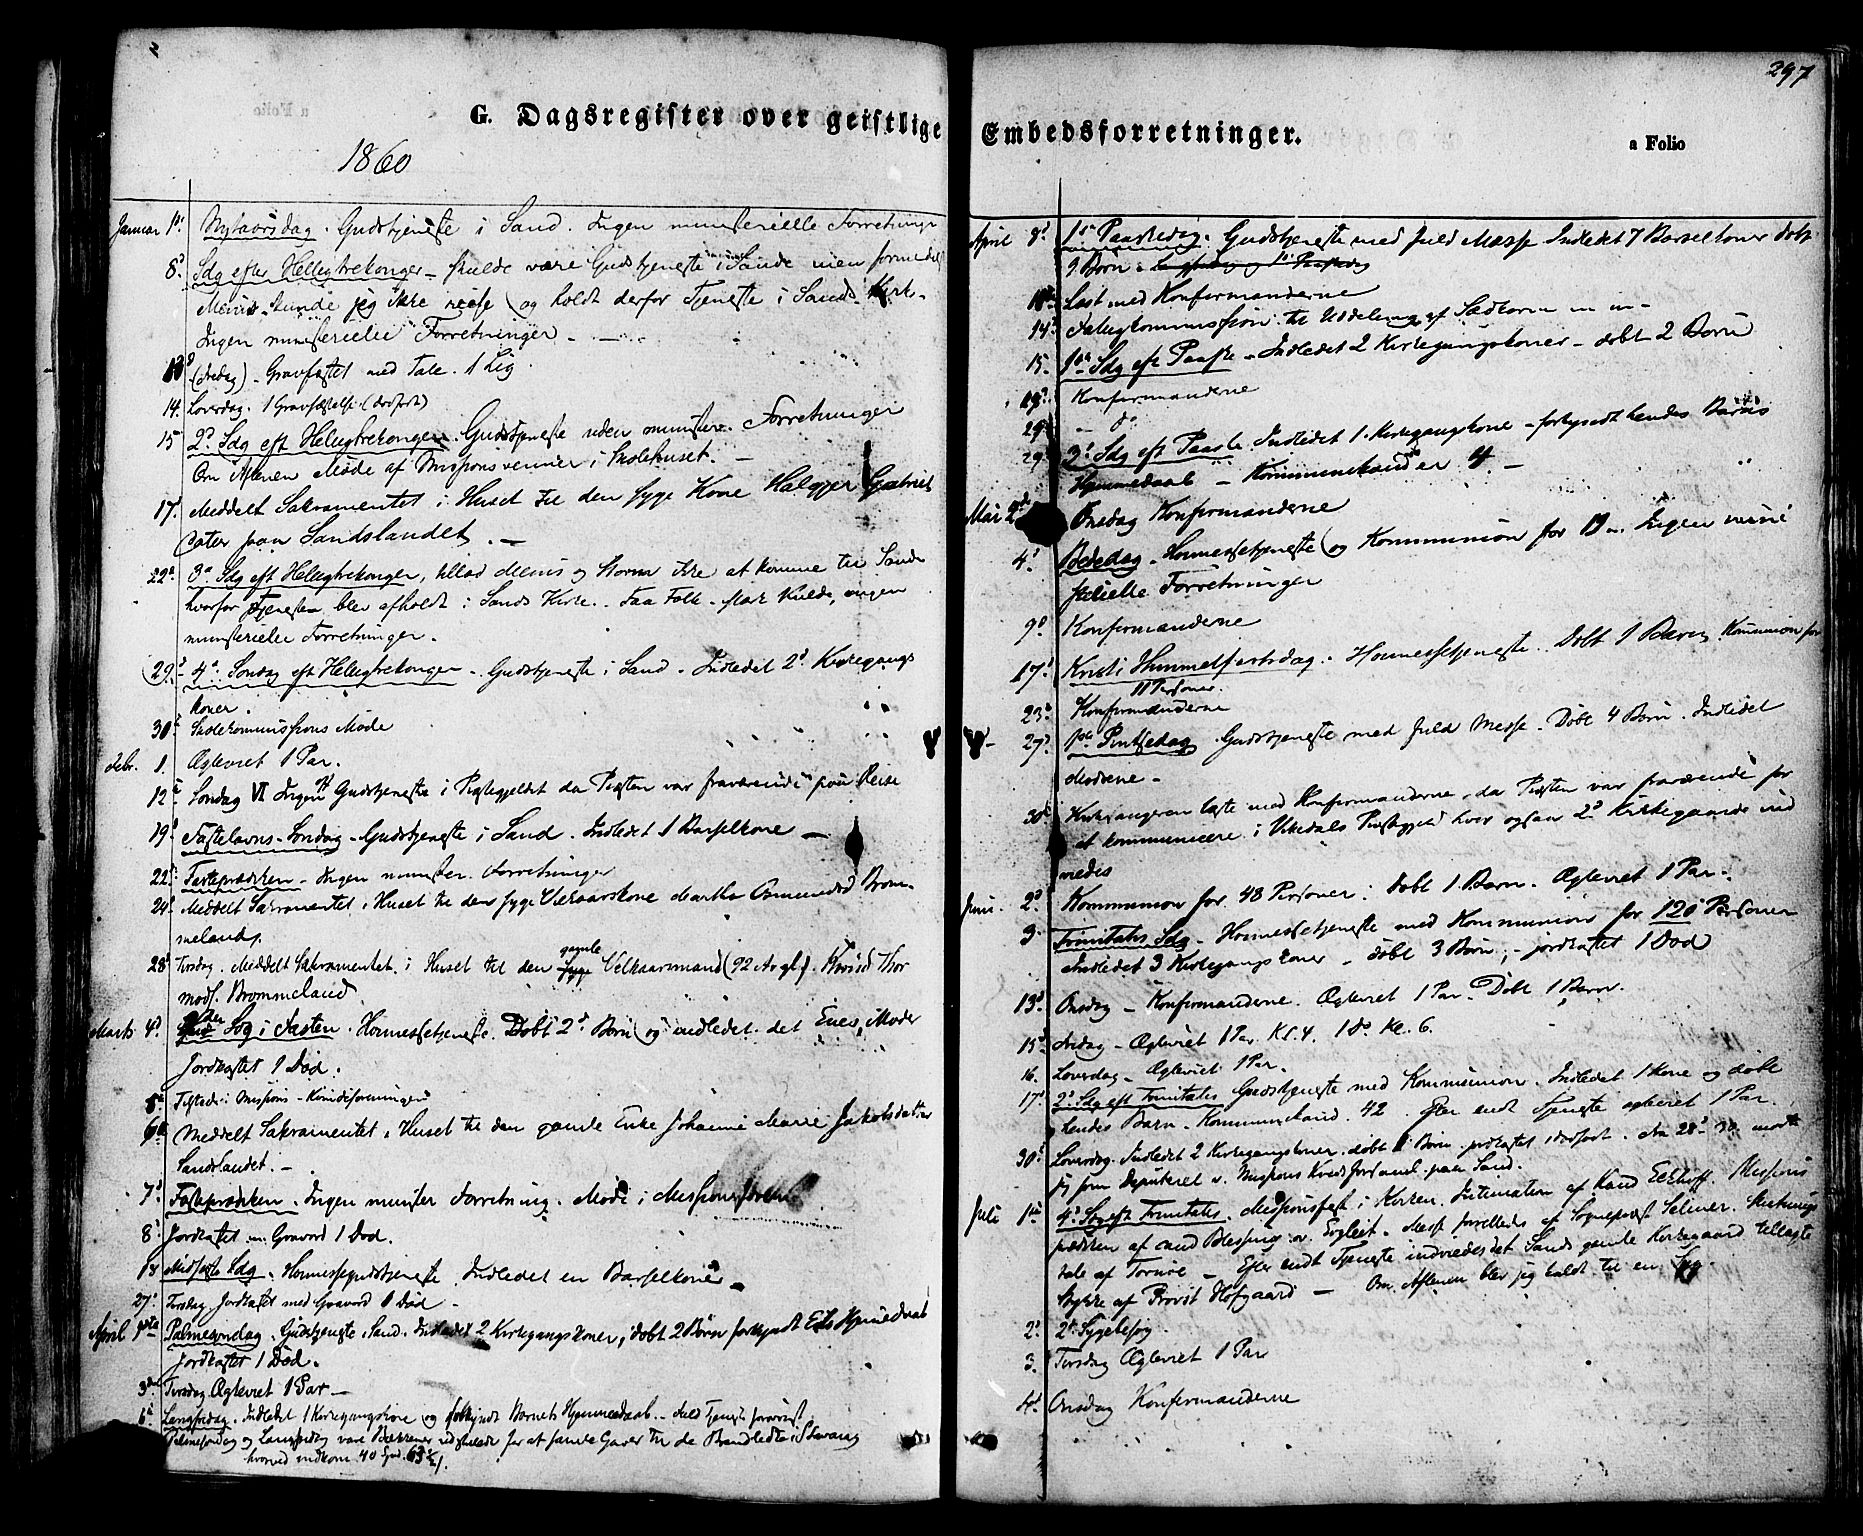 297
G. Dagsregister over geistlige Embedsforretninger.
a Folio
1860
Januar 1. Nytaarsdag. Gudstjeneste i Sand. Ingen ministerielle Forretninger
8d Sdg efter Helligtrekonger – skulde være Gudstjeneste i Sande men formedelst
kunde jeg ikke reise og holdt derfor Tjeneste i Sands Kirk.
Ingen ministerielle Forretninger
13 (Fredag) – Gravfæstet med Tale. 1 Lig.
14. Løverdag. 1 Gravfæstelse
15 2d Sdg eft Helligtrekonger. Gudstjeneste uden minister. Forretninger
Om Aftenen Møde af Missionsvenner i Skolehuset. –
17. Meddelt Sakramentet i Huset til den syge Kone
paa Sandslandet. –
22d 3d Sdg eft Helligtrekonger, tillod og Storm ikke at komme til Sande
hvorfor Tjenesten blev afholdt i Sands Kirke. Faa Folk. stærk Kulde, ingen
ministerielle Forretninger.
29d 4d Søndag eft Helligtrekonger – Gudstjeneste i Sand. Indledet 2d Kirkegangs
koner.
30d Skolekommissions Møde
Febr. 1. Ægteviet 1 Par.
12d Søndag VI Ingen Gudstjeneste i Præstegjeldet da Præsten var fraværende paa Reise
19d Fastelavns-Søndag – Gudstjeneste i Sand. Indledet 1 Barselkone –
22d Fasteprædiken – Ingen minister. Forretninger
24d Meddelt Sakramentet i Huset til den syge Martha Osmundsd Brom-
meland.
28d Tirsdag. Meddelt Sakramentet i Huset til den gamle syge (92 Ar gl.) Thor
mods. Brommeland.
Marts 4d Sdg i Fasten. Høimessetjeneste. Døbt 2d Børn og indledet det Enes Moder
Jordkastet 1 Død.
5d Missions-Kvindeforeningen
6te Meddelt Sakramentet i Huset til den gamle Enke Johanne Marie Jakobsdatter
Sandslandet. –
7d Fasteprædiken. Ingen minister Forretning. Møde i Missionsforen
8d Jordkastet m. Gravord 1 Død.
18 Midfaste Sdg. Høimessegudstjeneste Indledet en Barselkone –
27d Tirsdag. Jordkastet med Gravord 1 Død –
April 1ste Palmesøndag. Gudstjeneste i Sand. Indledet 2 Kirkegangskoner, døbt 2 Børn
Jordkastet 1 Død.
3die Tirsdag Ægteviet 1 Par –
6d Langfredag. Indledet 1 Kirkegangskone og Barnets Hjemmedaab
Palmesøndag og Langfredag vare Bækkener udstillede for at samle Gaver til de
hvorved indkom 40
April 8d 1ste Paaskedag. Gudstjeneste med fuld Messe Indledet 7 Barselkoner døbt
9 Børn
Læst med Konfirmanderne
14d Fattigkommission til Uddeling af Sædkorn
15. 1ste Sdg eft Paaske – Indledet 2 Kirkegangskoner – døbt 2 Børn
19d Konfirmanderne
– do
29 3d Sdg eft Paaske. Indledet 1 Kirkegangskone – hendes Barns
Hjemmedaab – Kommunikander 4. –
Mai 2d Onsdag Konfirmanderne
4d Bededag. Høimessetjeneste og Kommunion for Ingen mini
sterielle Forretninger
9d Konfirmanderne
17d Kristi Himmelfartsdag. Høimessetjeneste. Døbt 1 Barn, Kommunion for
11 Personer.
23d Konfirmanderne
27d 1ste Pintsedag Gudstjeneste med fuld Messe. Døbt 4 Børn. Indledet
Mødrene –
30d Kirkesangeren læste med Konfirmanderne, da Præsten var fraværende for
at kommunicere i
Juni. 2d Kommunion for 48 Personer: døbt 1 Barn. Ægteviet 1 Par.
3. Trinitatis Sdg – Høimessetjeneste med Kommunion for 120 Personer
Indledet 3 Kirkegangskoner – døbt 3 Børn; – jordkastet 1 Død
13d Onsdag – Konfirmanderne. Ægteviet 1 Par. Døbt 1 Barn.
15d Fredag – Ægteviet 1 Par Kl. 4. 1 do Kl. 6.
16. Løverdag – Ægteviet 1 Par.
17d 2d Sdg eft Trinitatis Gudstjeneste med Kommunion. Indledet 1 Kone og døbt
hendes Barn. Kommunikand. 42. Efter endt Tjeneste ægteviet 1 Par.
30d Løverdag. Indledet 2 Kirkegangskoner. døbt Børn
paa Sand.
Juli 1ste 4d Sdg eft Trinitatis. Missionsfest i Kirken. Intimation af Kand Eckhoff. Missions
prædiken af cand Blessing Messe forrettedes af Sognepræst Selmer. Slutnings
tale af – Efter endt Tjeneste indviedes det Sands gamle Kirkegaard tillagte
Stykke af Provst Hofgaard – Om Aftenen blev jeg kaldt til en Syg.
2d 2d Sygebesøg
3. Tirsdag Ægteviet 1 Par
4d Onsdag Konfirmanderne